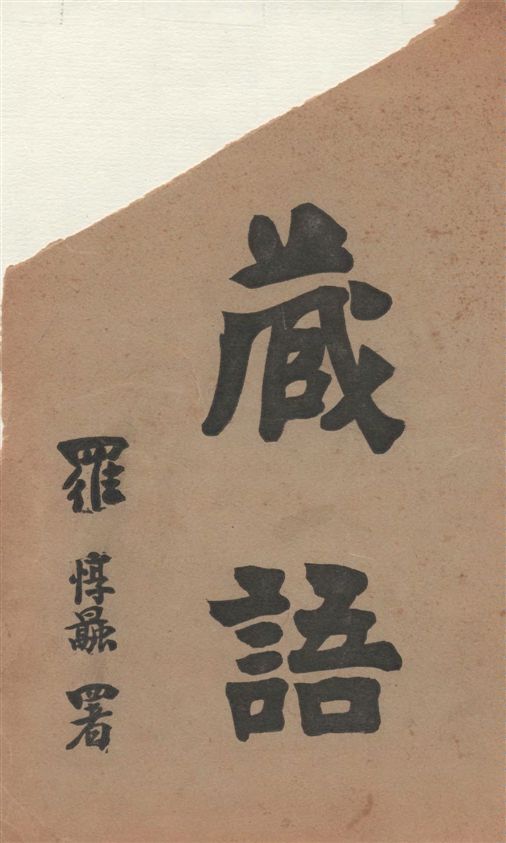 藏語
羅惇曧署